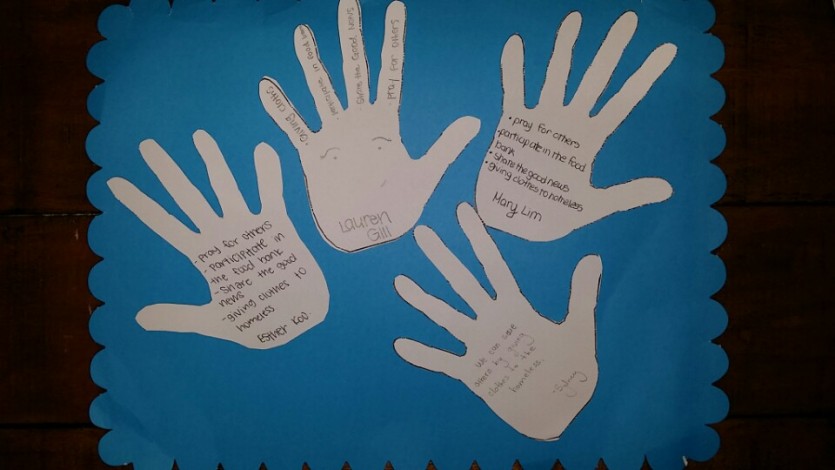 - pray for others
- participitate in
the food bank
- Share the good
news
- giving clothes to
homeless
Esther Koo.
- Giving cloths
- participate in food bank
- Share the Good News
- pray for others
Lauren
Gill
• pray for others
• participate in the food
bank
• Share the good news
• giving clothes to homeless
Mary Lim
We can serve
others by giving
clothes to the
homeless.